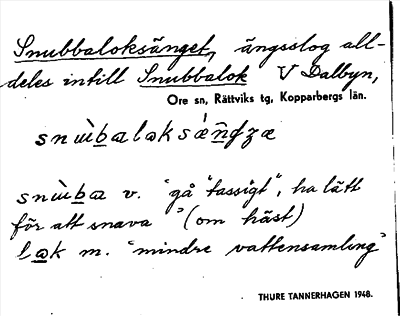 Snubbaloksänget, ängsslog all-
deles intill Snubbalok V Dalbyn,
Ore sn, Rättviks tg, Kopparbergs län.
snɯ̀baləksǽŋʒæ
snɯ̀ba v. "gå "tassigt", ha lätt
för att snava" (om häst)
lək m. "mindre vattensamling"
THURE TANNERHAGEN 1948.